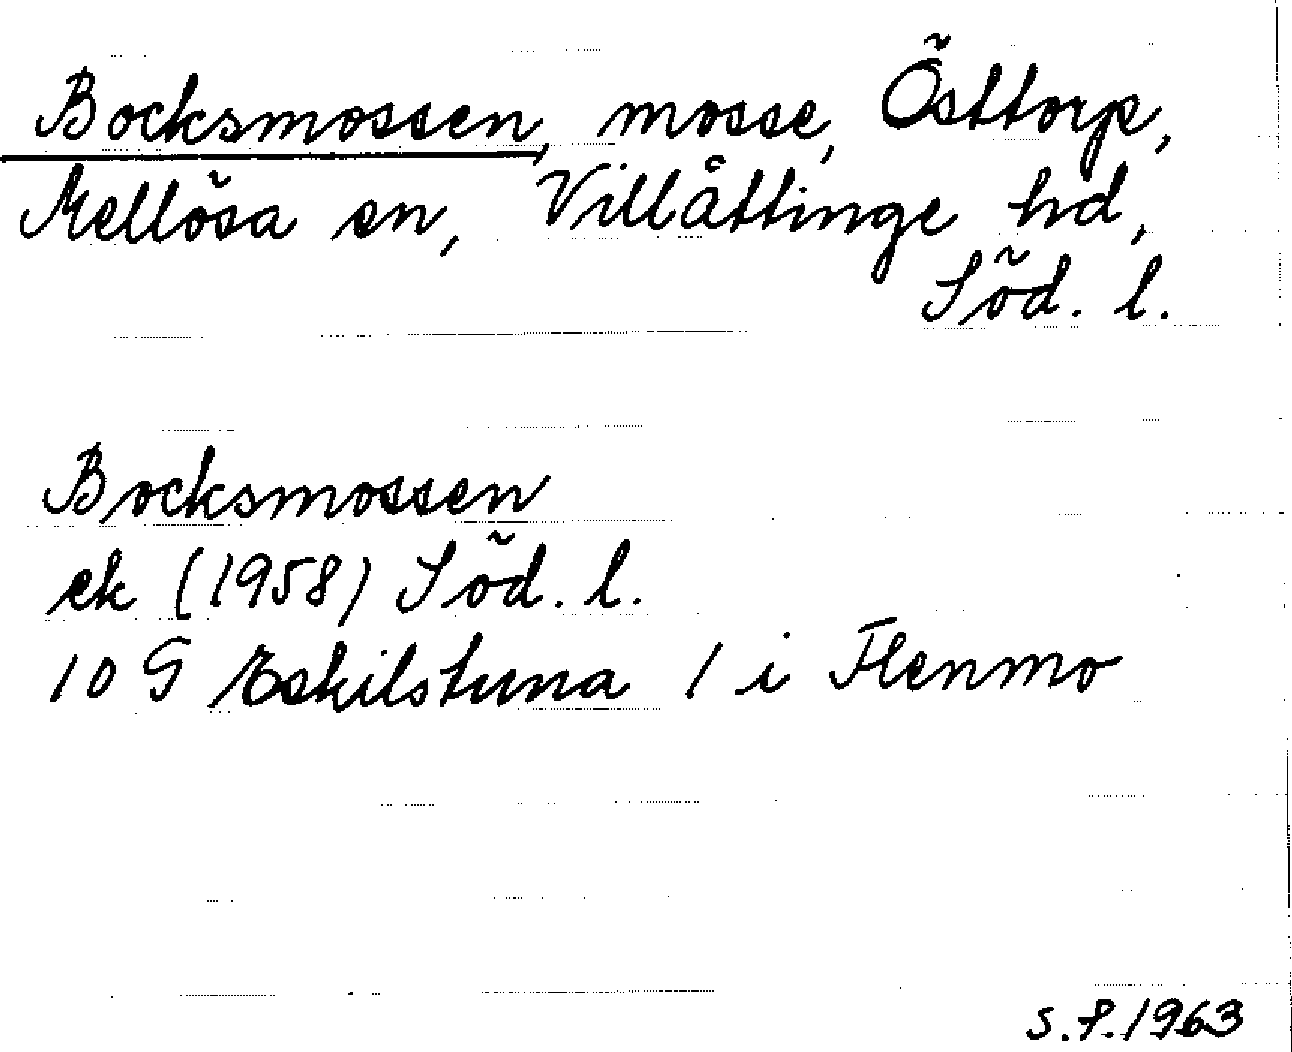 Bocksmossen, mosse, Östtorp,
Mellösa sn, Villåttinge hd,
Söd. l.
Bocksmossen
ek (1958) Söd. l.
10 G Eskilstuna 1 i Flenmo
S.P. 1963